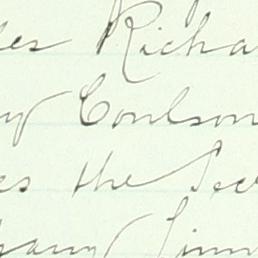 es Richa
y Coulson
es the Sec
pany Lim